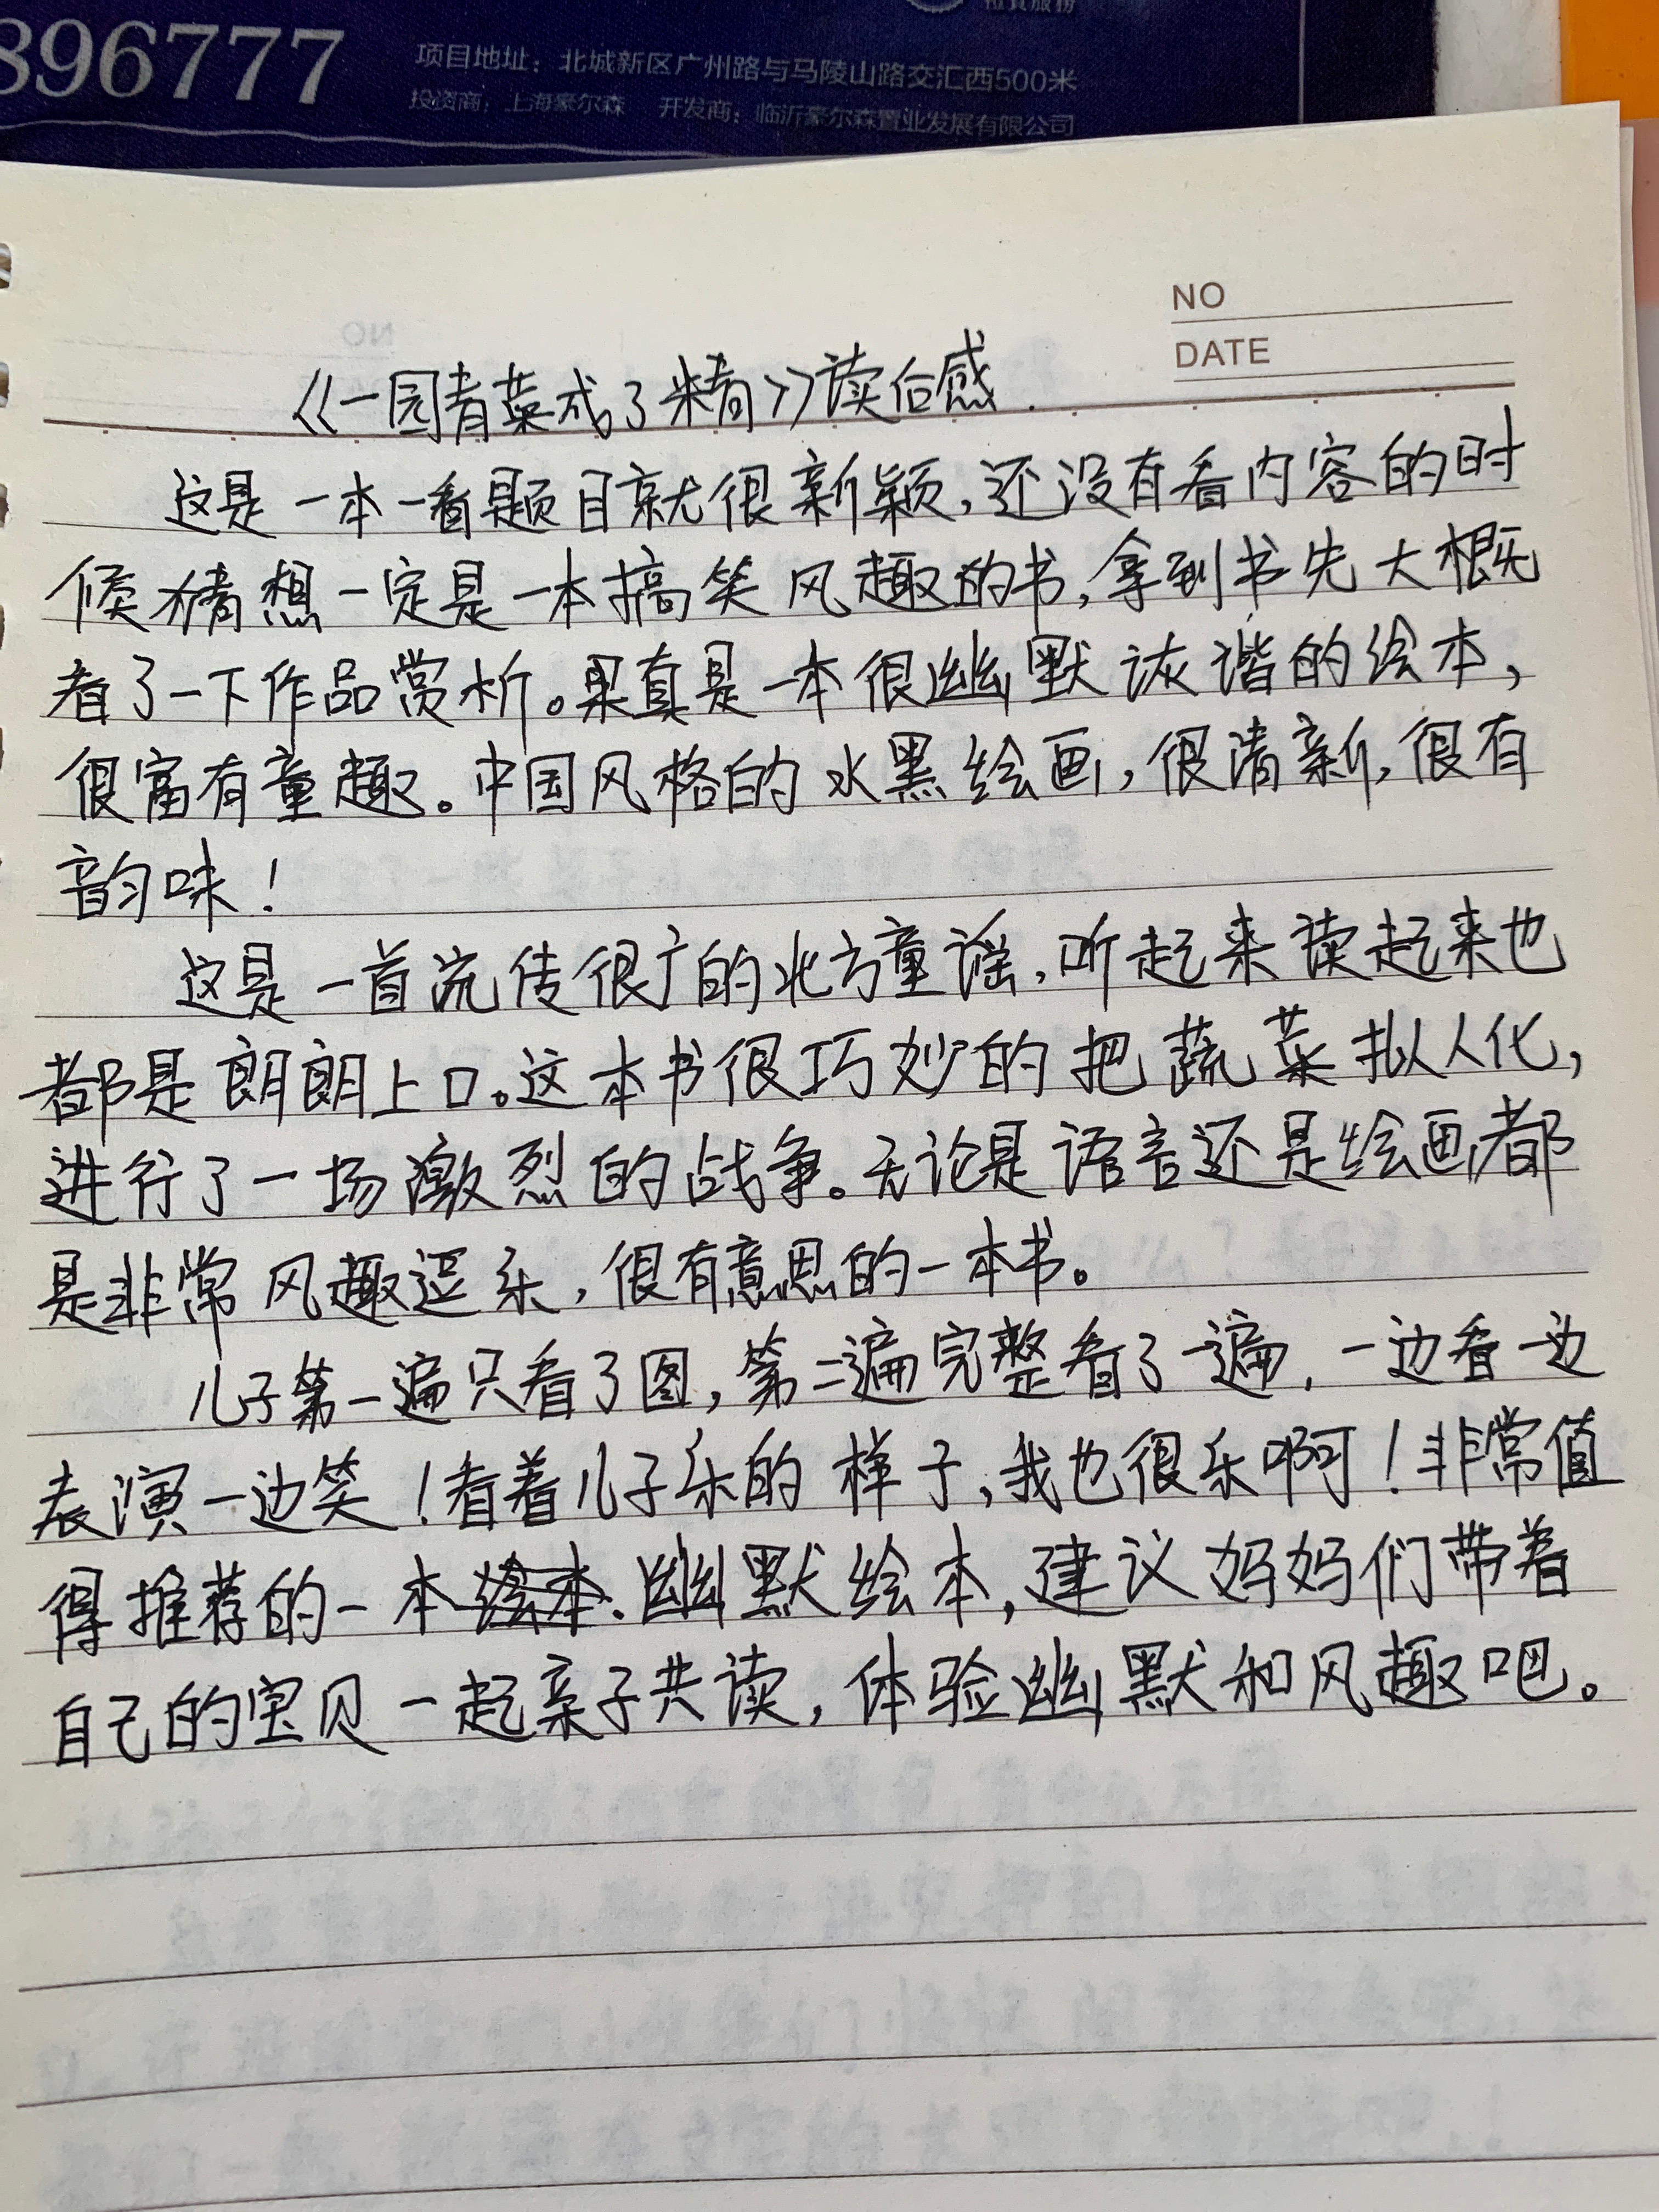 896777
项目地址：北城新区广州路与马陵山路交汇西500米
投资商：上海豪尔森 开发商：临沂豪尔森置业发展有限公司
NO
DATE
《一园青菜成了精》读后感.
这是一本一看题目就很新颖,还没有看内容的时
候猜想一定是一本搞笑风趣的书,拿到书先大概
看了一下作品赏析。果真是一本很幽默诙谐的绘本,
很富有童趣。中国风格的水黑绘画,很清新,很有
韵味!
这是一首流传很广的北方童谣,听起来读起来也
都是朗朗上口。这本书很巧妙的把蔬菜拟人化,
进行了一场激烈的战争。无论是语言还是绘画,都
是非常风趣逗乐,很有意思的一本书。
儿子第一遍只看了图,第二遍完整看了一遍,一边看一边
表演一边笑!看着儿子乐的样子,我也很乐啊!非常值
得推荐的一本绘本.幽默绘本,建议妈妈们带着
自己的宝贝一起亲子共读,体验幽默和风趣吧。